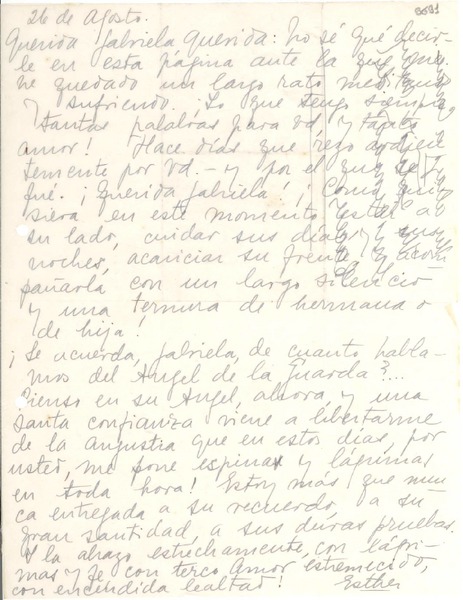 3531
26 de Agosto.
Querida Gabriela Querida: No sé qué decir-
le en esta página ante la que
he quedado un largo rato meditando
y sufriendo. Lo que tengo siempre
tantas palabras para Vd. y tanto
amor! Hace días que rezo ardien
temente por Vd. - y por el que se
fué. ¡Querida Gabriela! ¡Como qui
siera en este momento estar a
su lado, cuidar sus días y sus
noches, acariciar su frente y acom
pañarla con un largo silencio
y una ternura de hermana o
de hija!
¡Se acuerda, Gabriela, de cuanto habla-
mos del Angel de la Guarda?...
Pienso en su Angel, ahora, y una
santa confianza viene a libertarme
de la angustia que en estos días, por
usted, me pone espinas y lágrimas
en toda hora! Estoy más que nun
ca entregada a su recuerdo, a su
gran santidad, a sus duras pruebas.
Y la abrazo estrechamente, con lágri-
mas y fe, con terco amor estremecido,
con encendida lealtad! Esther